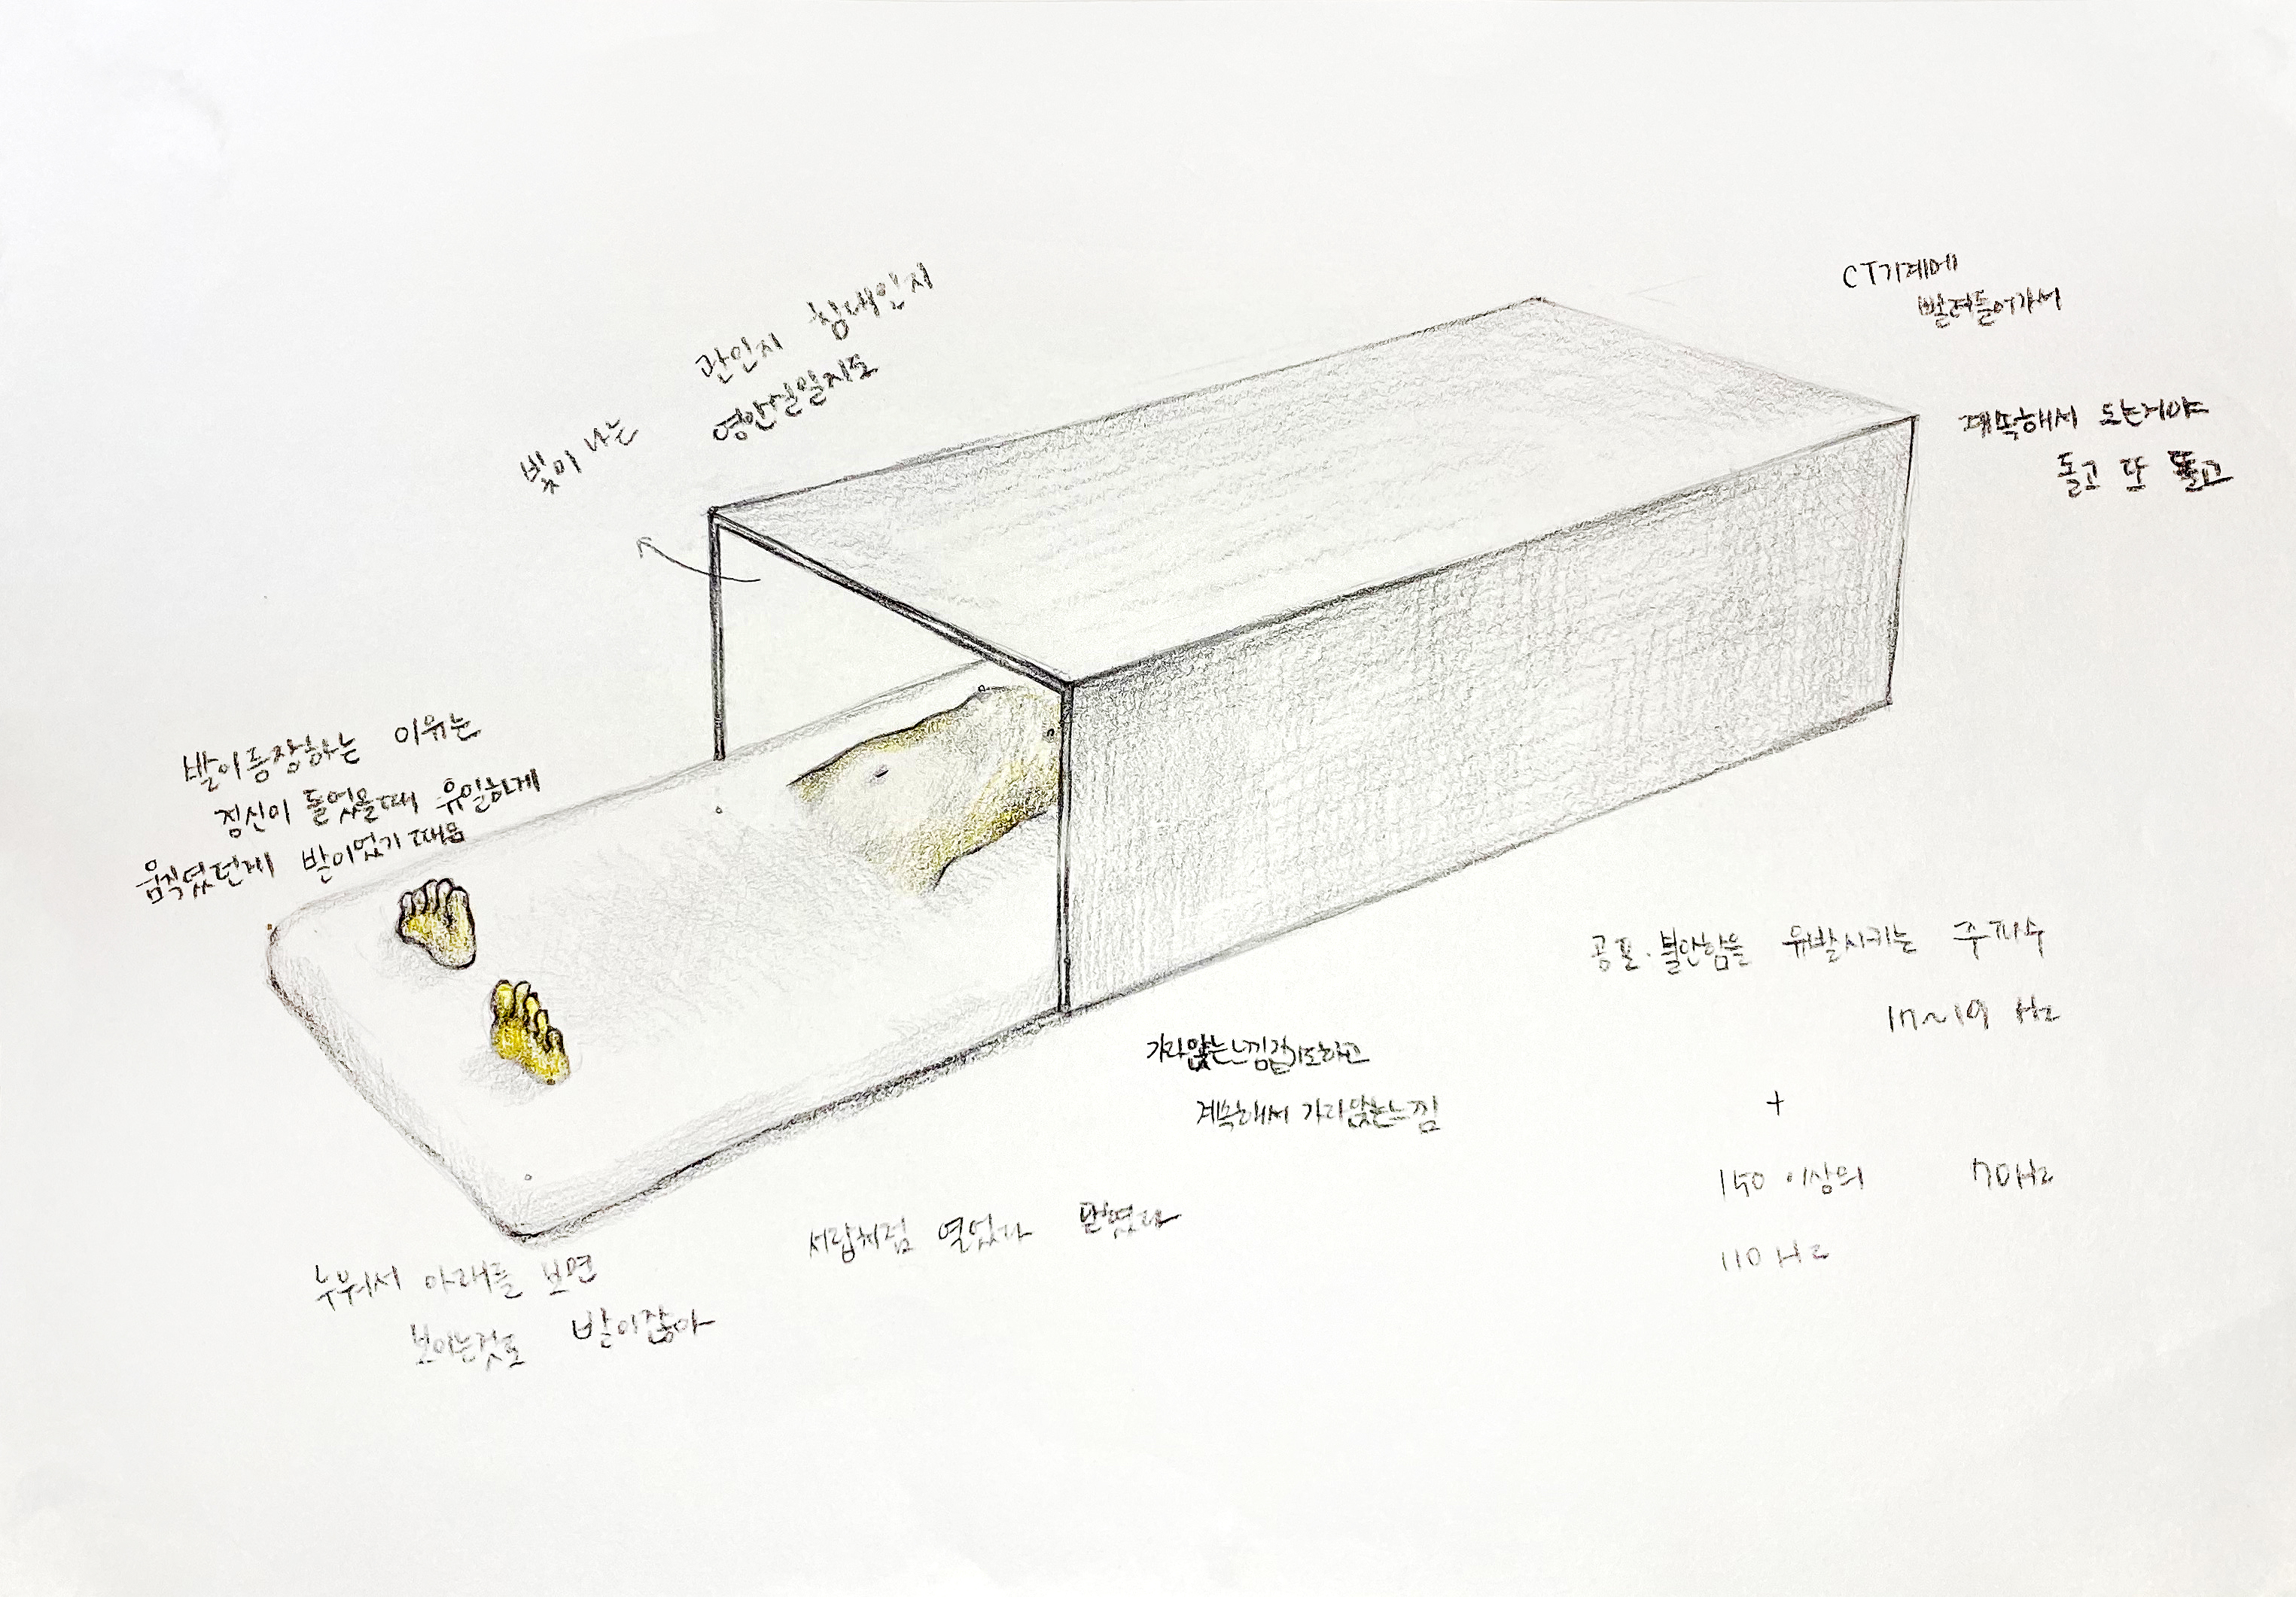 CT기계에
빨려들어가서
계속해서 도는거야
돌고 또 돌고
관인지 침대인지
영안실일지도
빛이 나는
발이등장하는 이유는
정신이 들었을때 유일하게
움직였던게 발이었기때문
공포·불안함을 유발시키는 주파수
17~19 Hz
+
150 이상의 70Hz
110 Hz
가라앉는느낌같기도하고
계속해서 가라앉는느낌
서랍처럼 열었다 닫혔다
누워서 아래를 보면
보이는것도 발이잖아